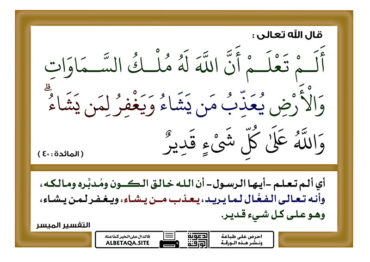 قال الله تعالى :
أَلَمْ تَعْلَمْ أَنَّ اللَّهَ لَهُ مُلْكُ السَّمَاوَاتِ
وَالْأَرْضِ يُعَذِّبُ مَن يَشَاءُ وَيَغْفِرُ لِمَن يَشَاءُ ۗ
وَاللَّهُ عَلَىٰ كُلِّ شَيْءٍ قَدِيرٌ
( المائدة : ٤٠ )
أي ألم تعلم -أيها الرسول- أن الله خالق الكون ومُدبِّره ومالكه،
وأنه تعالى الفعَّال لما يريد، يعذب من يشاء، ويغفر لمن يشاء،
وهو على كل شيء قدير.
التفسير الميسر
احرص على طباعة
ونشر هذه الورقة
ALBETAQA.SITE